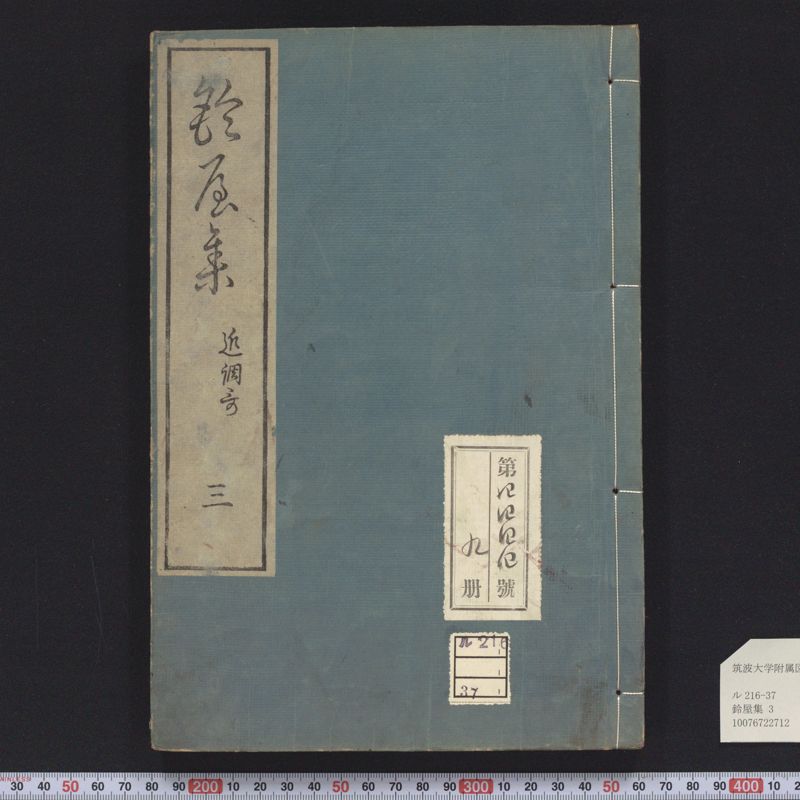 鈴屋集
近調哥
三
第四四四四號
九册
ル216
37
筑波大学附属図
ル 216-37
鈴屋集 3
10076722712
30 40 50 60 70 80 90 200 10 20 30 40 50 60 70 80 90 300 10 20 30 40 50 60 70 80 90 400 10 2